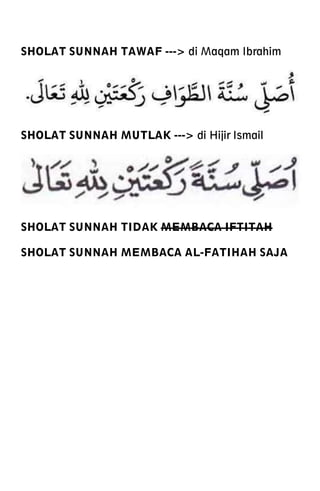 SHOLAT SUNNAH TAWAF ---> di Maqam Ibrahim
أُصَلِّي سُنَّةَ الطَّوَافِ رَكْعَتَيْنِ لِلّٰهِ تَعَالَى.
SHOLAT SUNNAH MUTLAK ---> di Hijir Ismail
اُصَلِّى سُنَّةً رَكْعَتَيْنِ لِلّٰهِ تَعَالٰى
SHOLAT SUNNAH TIDAK MEMBACA IFTITAH
SHOLAT SUNNAH MEMBACA AL-FATIHAH SAJA